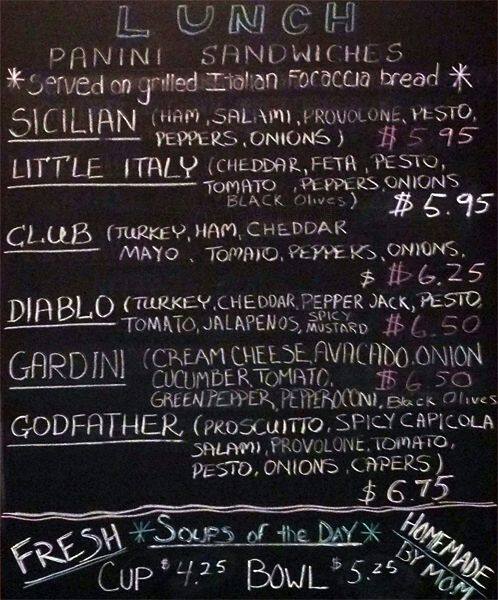 LUNCH
PANINI SANDWICHES
*Served on grilled Italian Focaccia bread *
SICILIAN (HAM, SALAMI, PROVOLONE, PESTO,
PEPPERS, ONIONS) $5.95
LITTLE ITALY (CHEDDAR, FETA, PESTO,
TOMATO, PEPPERS, ONIONS
BLACK Olives) $5.95
CLUB (TURKEY, HAM, CHEDDAR
MAYO, TOMATO, PEPPERS, ONIONS,
$ $6.25
DIABLO (TURKEY, CHEDDAR, PEPPER JACK, PESTO,
TOMATO, JALAPENOS, SPICY MUSTARD $6.50
GARDINI (CREAM CHEESE, AVACADO, ONION
CUCUMBER, TOMATO, $6.50
GREEN PEPPER, PEPPEROCINI, Black Olives
GODFATHER (PROSCUITTO, SPICY CAPICOLA
SALAMI, PROVOLONE, TOMATO,
PESTO, ONIONS, CAPERS)
$6.75
FRESH *SOUPS of the DAY* HOMEMADE BY M.O.M
CUP $4.25 BOWL $5.25